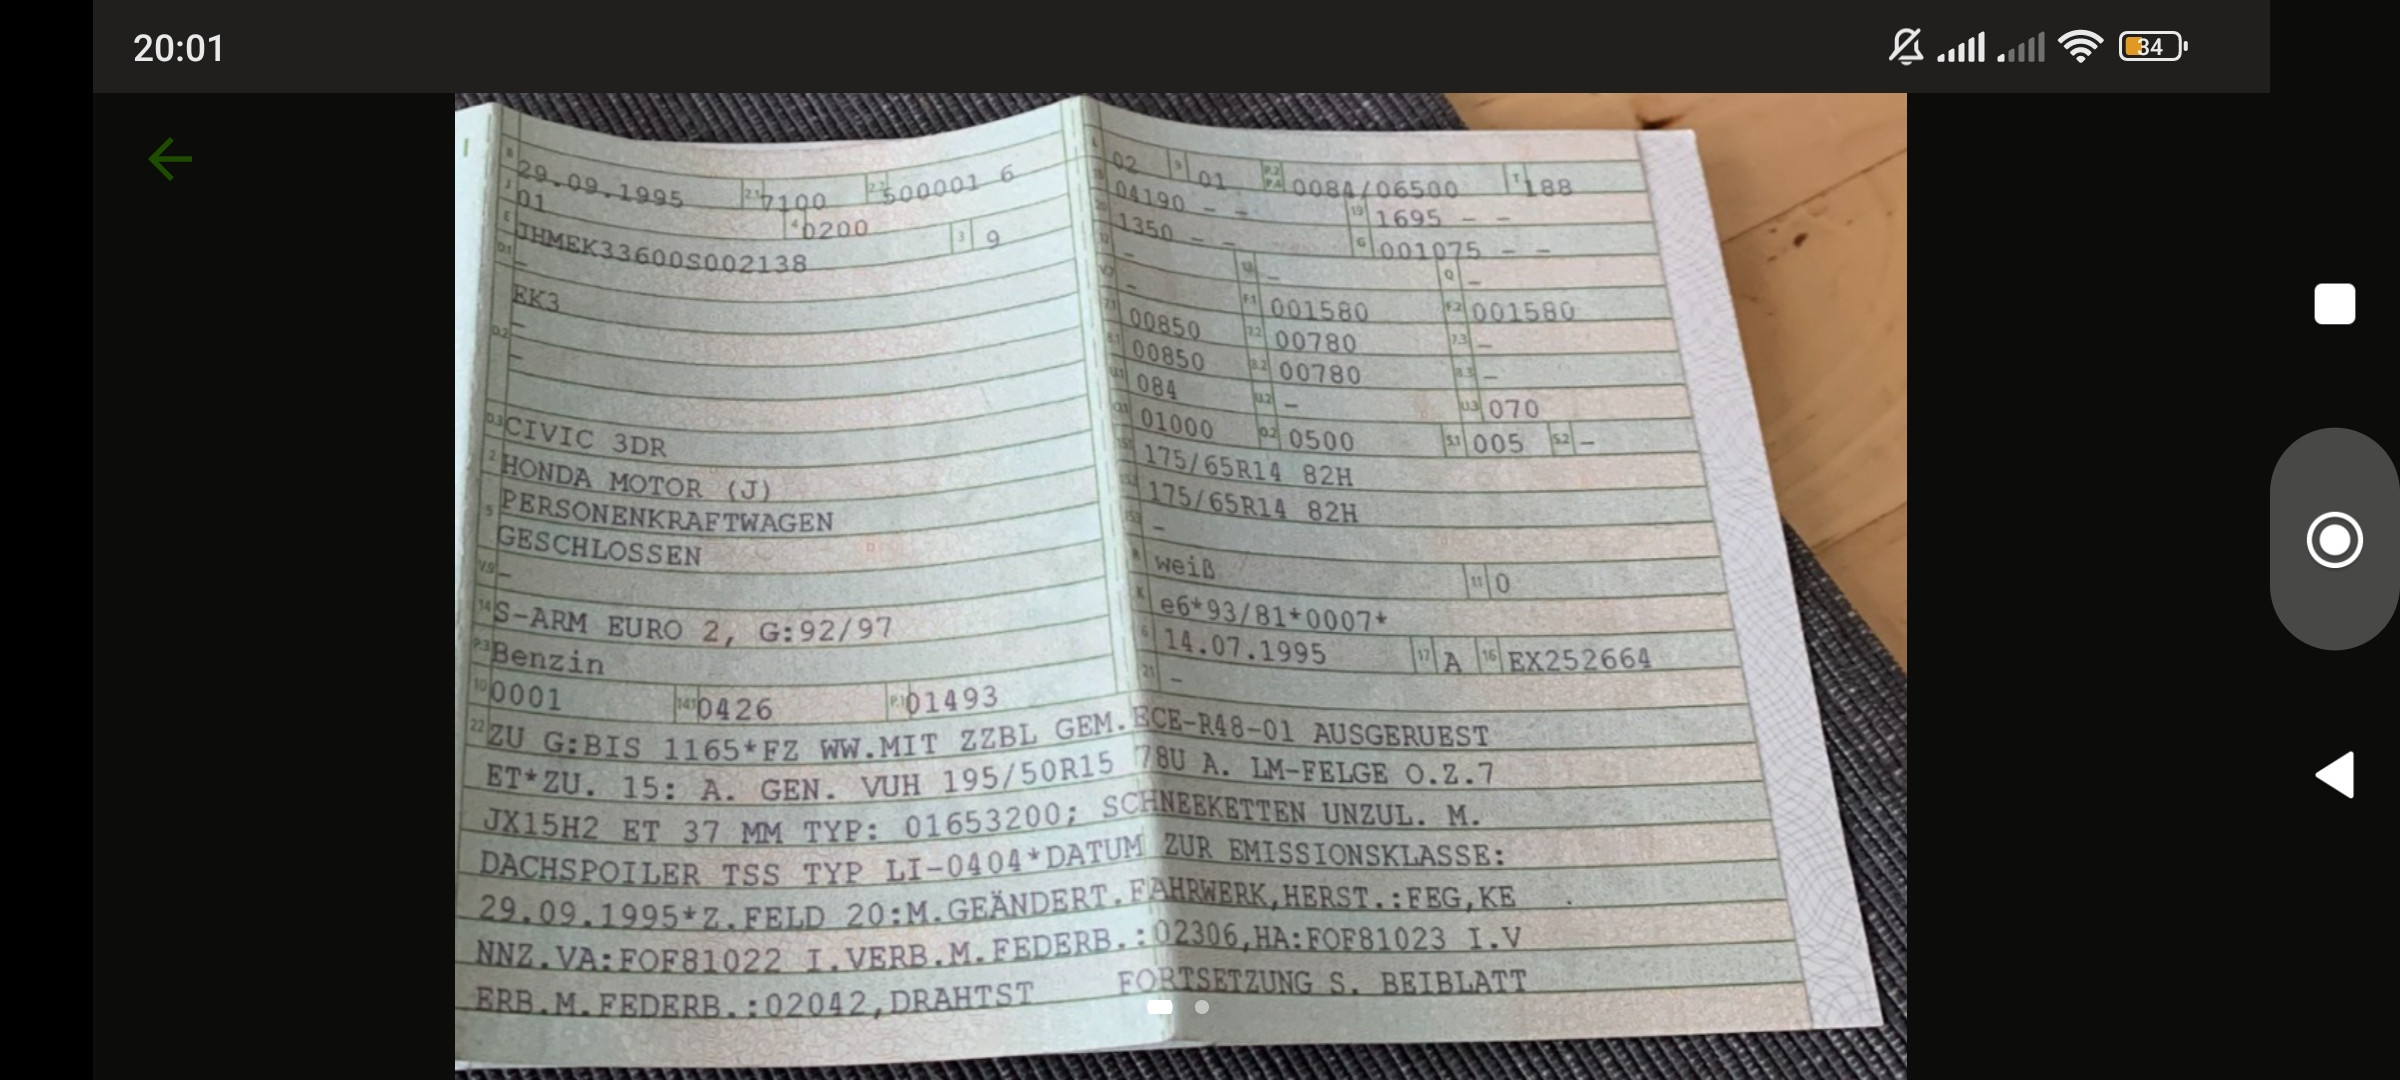 20:01
34
B 29.09.1995 2.1 7100 2.2 500001 6
J 01 4 0200
E JHMEK33600S002138 3 9
D.1 –
EK3
D.2 –
–
D.3 CIVIC 3DR
2 HONDA MOTOR (J)
5 PERSONENKRAFTWAGEN
GESCHLOSSEN
V.9 –
14 S-ARM EURO 2, G:92/97
P.3 Benzin
10 0001 14.1 0426 P.1 01493
L 02 9 01 P.2 P.4 0084/06500 T 188
18 04190 – – 19 1695 – –
20 1350 – – G 001075 – –
12 – 13 – Q –
V.7 – F.1 001580 F.2 001580
7.1 00850 7.2 00780 7.3 –
8.1 00850 8.2 00780 8.3 –
U.1 084 U.2 – U.3 070
O.1 01000 O.2 0500 S.1 005 S.2 –
15.1 175/65R14 82H
15.2 175/65R14 82H
15.3 –
R weiß 11 0
K e6*93/81*0007*
6 14.07.1995 17 A 16 EX252664
21 –
22 ZU G:BIS 1165*FZ WW.MIT ZZBL GEM.ECE-R48-01 AUSGERUEST
ET*ZU. 15: A. GEN. VUH 195/50R15 78U A. LM-FELGE O.Z.7
JX15H2 ET 37 MM TYP: 01653200; SCHNEEKETTEN UNZUL. M.
DACHSPOILER TSS TYP LI-0404*DATUM ZUR EMISSIONSKLASSE:
29.09.1995*Z.FELD 20:M.GEÄNDERT.FAHRWERK,HERST.:FEG,KE
NNZ.VA:FOF81022 I.VERB.M.FEDERB.:02306,HA:FOF81023 I.V
ERB.M.FEDERB.:02042,DRAHTST FORTSETZUNG S. BEIBLATT